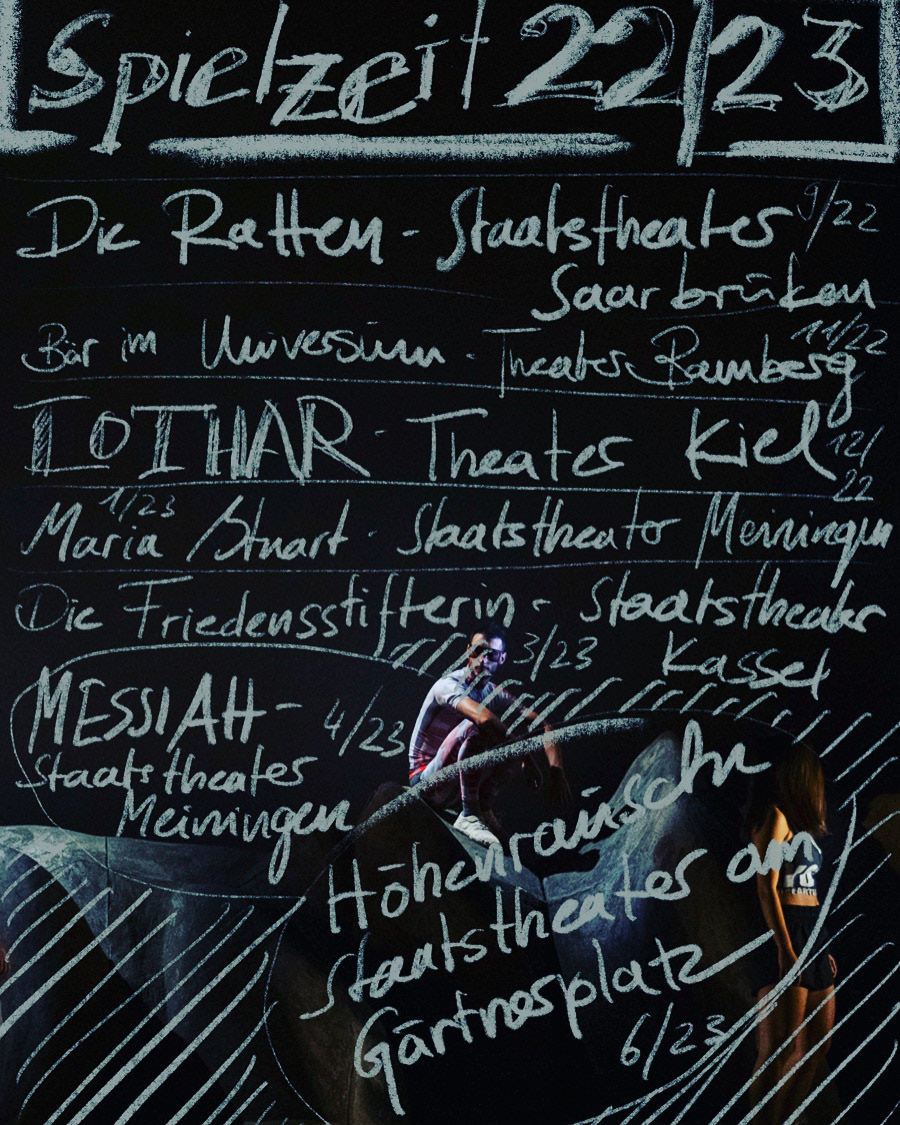 Spielzeit 22/23
Die Ratten - Staatstheater 9/22
Saarbrüken
Bär im Universum - Theater Bamberg 11/22
LOTHAR - Theater Kiel 12/
22
1/23
Maria Stuart - Staatstheater Meiningen
Die Friedensstifterin - Staatstheater
3/23 Kassel
MESSIAH - 4/23
Staatstheater
Meiningen
Höhenrausch
Staatstheater am
Gärtnerplatz
6/23